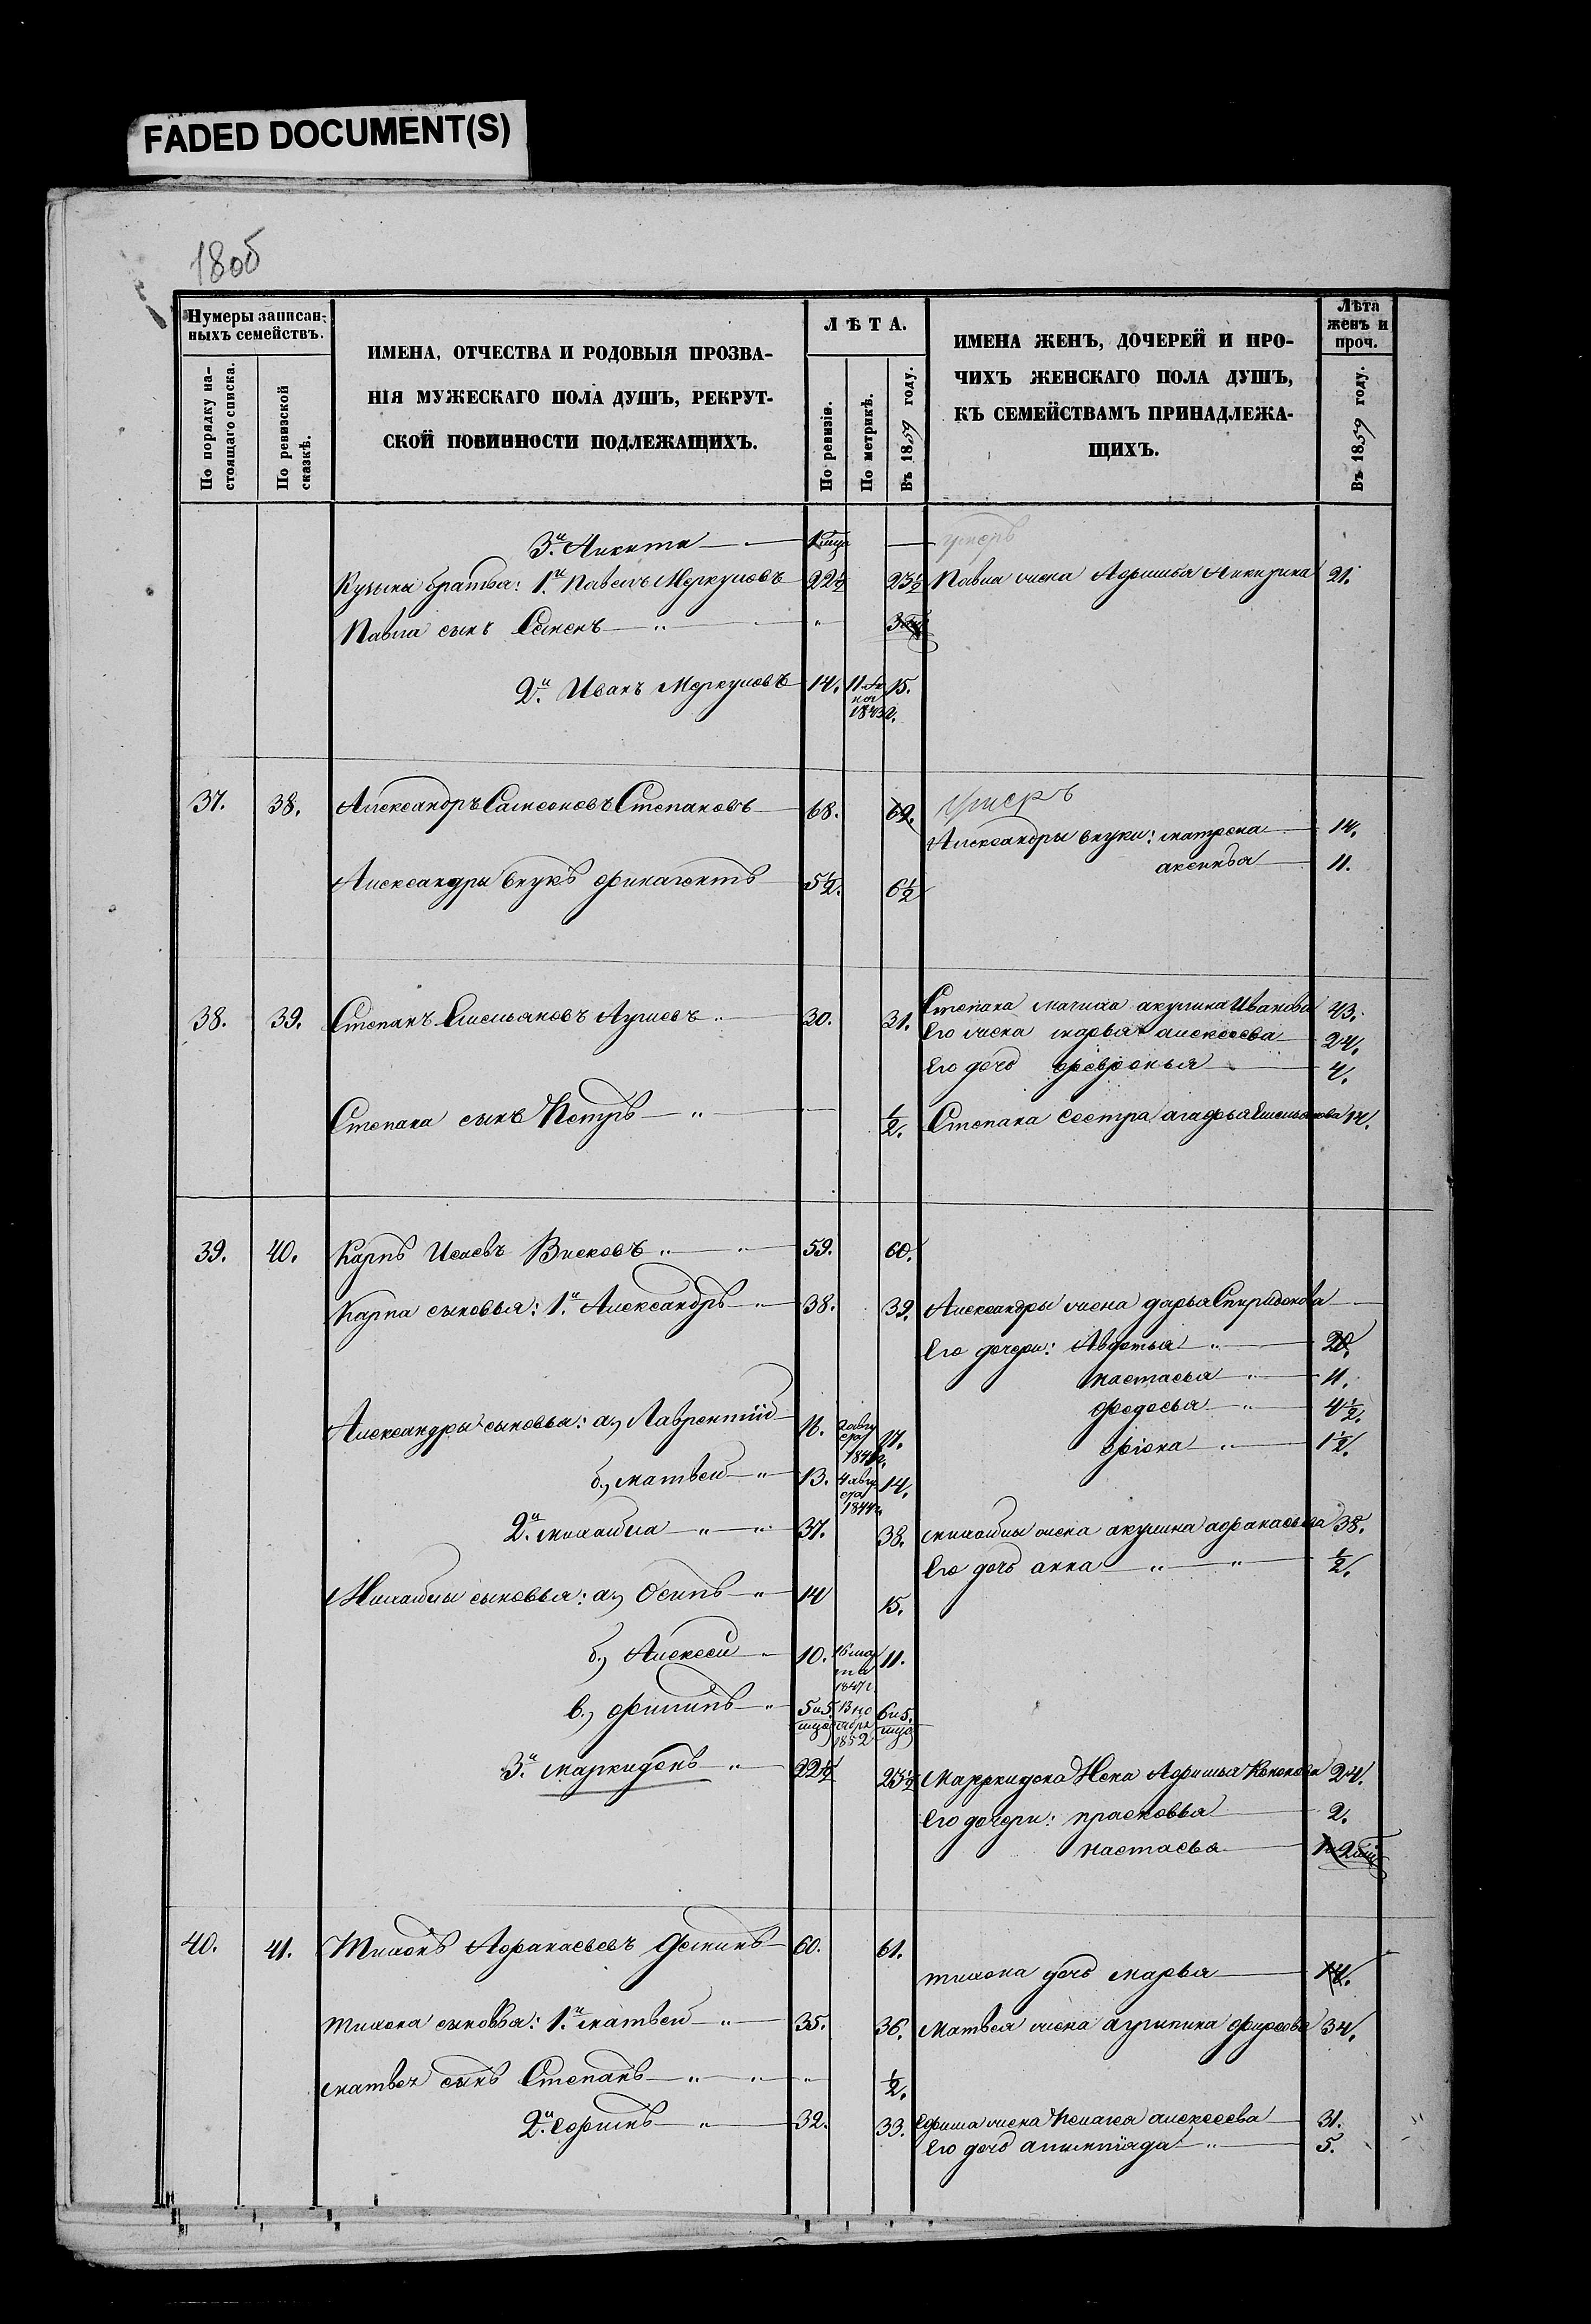 FADED DOCUMENT(S)
180б
Нумеры записан-
ныхъ семействъ.
По порядку на-
стоящаго списка.
По ревизской
сказкѣ.
ИМЕНА, ОТЧЕСТВА И РОДОВЫЯ ПРОЗВА-
НІЯ МУЖЕСКАГО ПОЛА ДУШЪ, РЕКРУТ-
СКОЙ ПОВИННОСТИ ПОДЛЕЖАЩИХЪ.
ЛѢТА.
По ревизіи.
По метрикѣ.
Въ 1859 году.
ИМЕНА ЖЕНЪ, ДОЧЕРЕЙ И ПРО-
ЧИХЪ ЖЕНСКАГО ПОЛА ДУШЪ,
КЪ СЕМЕЙСТВАМЪ ПРИНАДЛЕЖА-
ЩИХЪ.
Лѣта
женъ и
проч.
Въ 1859 году.
3й Никита умеръ
Кузьмы братья: 1й Павелъ Меркуловъ 22½ 23½ Павла жена Афимья 21.
Павла сынъ Семенъ "
2й Иванъ Меркуловъ 14. 15.
1843г.
37. 38. Александръ Самсоновъ Степановъ 68. 69. умеръ
Александры внуки: матрена 14.
аксинья 11.
Александры внукъ 5½. 6½
38. 39. Степанъ Емельяновъ 30. 31. Степана мачиха акулина Иванова 43.
Его жена марья алексеева 24.
Его дочь февронья 4.
Степана сынъ Петръ " ½. Степана сестра агафья Емельянова 14.
39. 40. Карпъ Исаевъ Висковъ " 59. 60.
Карпа сыновья: 1й Александръ 38. 39. Александры жена дарья Спиридонова
Его дочери: Авдотья " 20.
настасья " 11.
федосья " 4½.
" 1½.
Александры сыновья: а, Лаврентій 16. 17.
б, матвей " 13. 4 авгу
ста
1844г 14.
2й михайла " " 37. 38. михайлы жена акулина афанасьева 38.
Его дочь анна " " ½.
Михайлы сыновья: а, Осипъ " 14 15.
б, Алексей 10. 16 ма
рта
1847г 11.
в, филипъ " 5 и 5.
1852 6 и 5.
3й маркидонъ " 22½ 23½ Маркидона Жена Афимья Кононова 24.
Его дочери: прасковья 2.
настасья
40. 41. Тихонъ Афанасьевъ 60. 61.
тихона дочь марья 14.
тихона сыновья: 1й матвей " 35. 36. Матвея жена агрипина фирсова 34.
матвея сынъ Степанъ " " " ½.
2й ефимъ " 32. 33. Ефима жена Пелагея алексеева 31.
Его дочь " 5.